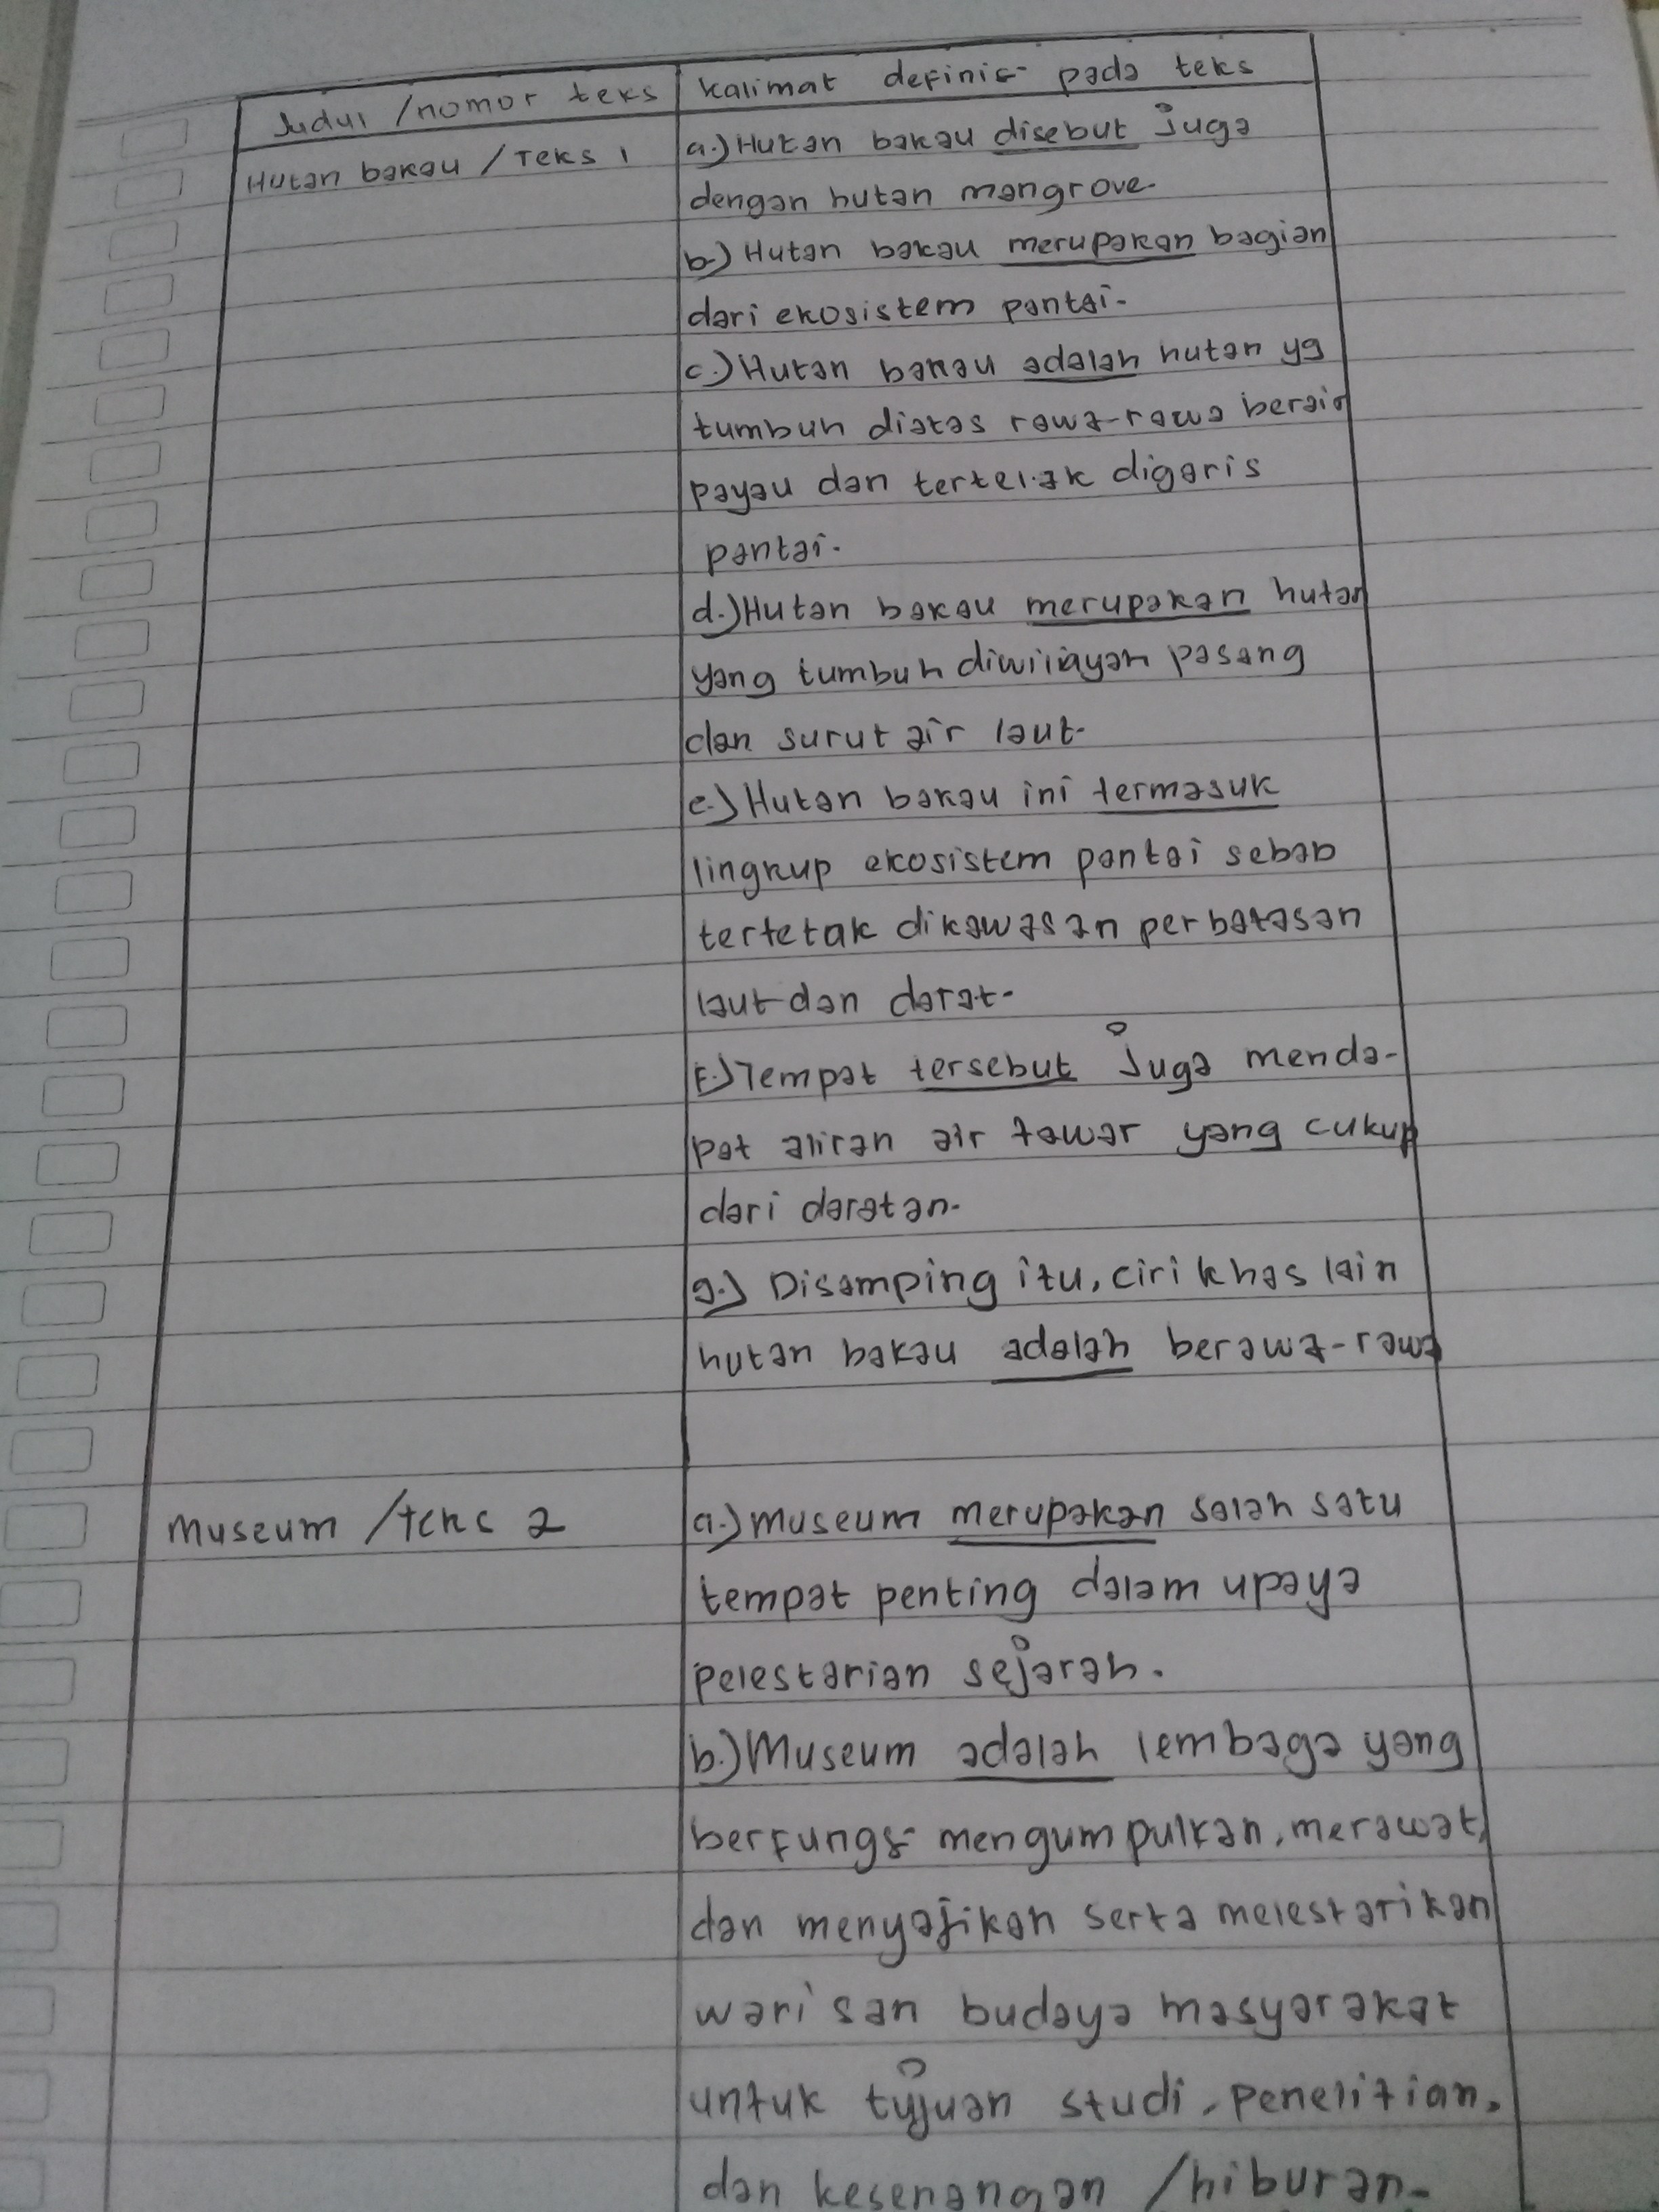 Judul /nomor teks
kalimat definisi pada teks
Hutan bakau / Teks 1
a.) Hutan bakau disebut juga
dengan hutan mangrove.
b.) Hutan bakau merupakan bagian
dari ekosistem pantai.
c.) Hutan bakau adalah hutan yg
tumbuh diatas rawa-rawa berair
payau dan tertelak digaris
pantai.
d.) Hutan bakau merupakan hutan
yang tumbuh diwilayah pasang
dan surut air laut.
e.) Hutan bakau ini termasuk
lingkup ekosistem pantai sebab
tertetak dikawasan perbatasan
laut dan darat.
F.) Tempat tersebut juga menda-
pat aliran air tawar yang cukup
dari daratan.
g.) Disamping itu, ciri khas lain
hutan bakau adalah berawa-rawa
Museum /teks 2
a.) Museum merupakan salah satu
tempat penting dalam upaya
pelestarian sejarah.
b.) Museum adalah lembaga yang
berfungsi mengumpulkan, merawat,
dan menyajikan serta melestarikan
warisan budaya masyarakat
untuk tujuan studi, penelitian,
dan kesenangan /hiburan.